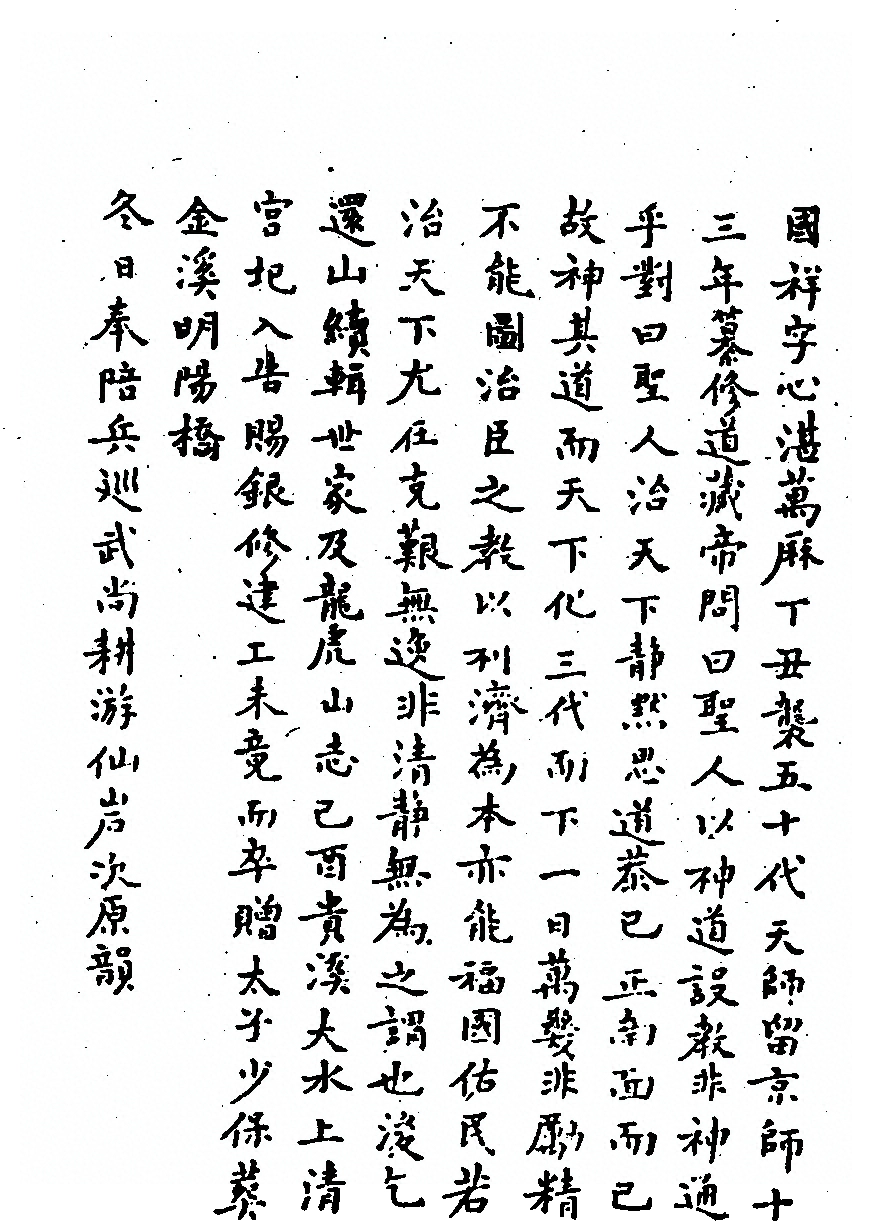 國祥字心湛萬厤丁丑襲五十代天師留京師十
三年纂修道藏帝問曰聖人以神道設教非神通
乎對曰聖人治天下靜然思道恭已正南面而已
故神其道而天下化三代而下一日萬幾非勵精
不能圖治臣之教以利濟為本亦能福國佑民若
治天下尤在克艱無逸非清靜無為之謂也後乞
還山續輯世家及龍虎山志己酉貴溪大水上清
宮圮入告賜銀修建工未竟而卒贈太子少保葬
金溪明陽橋
冬日奉陪兵巡武尚耕游仙岩次原韻